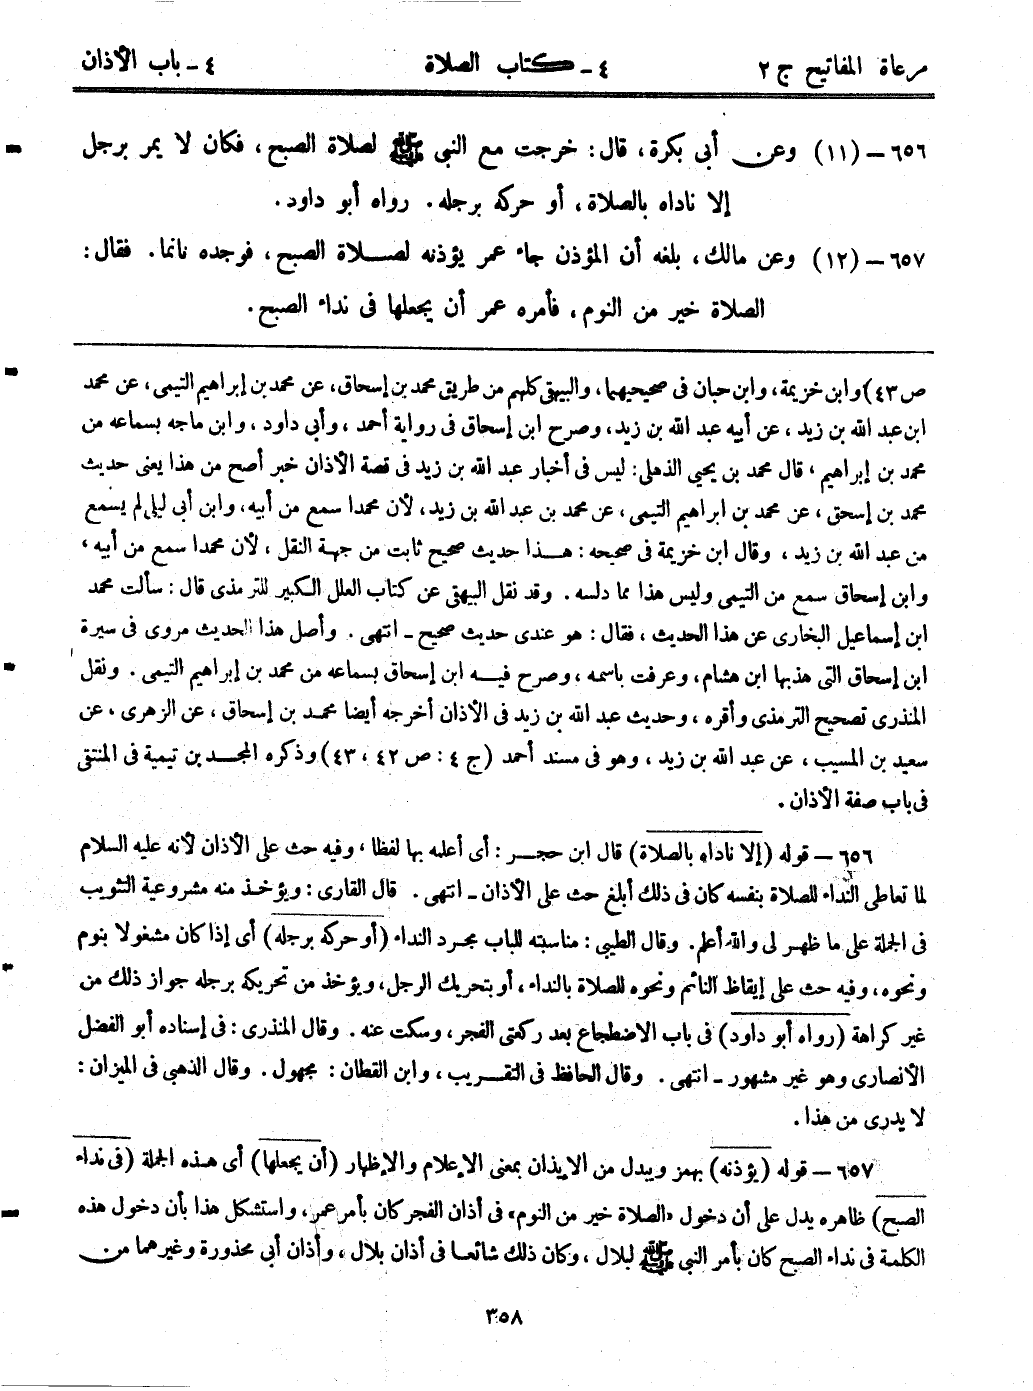 مرعاة المفاتيح ج ٢ ٤ ـ كتاب الصلاة ٤ ـ باب الأذان
٦٥٦ – (١١) وعن أبى بكرة، قال: خرجت مع النبى ﷺ لصلاة الصبح، فكان لا يمر برجل
إلا ناداه بالصلاة، أو حركه برجله. رواه أبو داود.
٦٥٧ – (١٢) وعن مالك، بلغه أن المؤذن جاء عمر يؤذنه لصلاة الصبح، فوجده نائما. فقال:
الصلاة خير من النوم، فأمره عمر أن يجعلها فى نداء الصبح.
ص ٤٣) وابن خزيمة، وابن حبان فى صحيحيهما، والبيهقى كلهم من طريق محمد بن إسحاق، عن محمد بن إبراهيم التيمى، عن محمد
ابن عبد الله بن زيد، عن أبيه عبد الله بن زيد، وصرح ابن إسحاق فى رواية أحمد، وأبى داود، وابن ماجه بسماعه من
محمد بن إبراهيم، قال محمد بن يحيى الذهلى: ليس فى أخبار عبد الله بن زيد فى قصة الأذان خبر أصح من هذا يعنى حديث
محمد بن إسحق، عن محمد بن ابراهيم التيمى، عن محمد بن عبد الله بن زيد، لأن محمدا سمع من أبيه، وابن أبى ليلى لم يسمع
من عبد الله بن زيد، وقال ابن خزيمة فى صحيحه: هذا حديث صحيح ثابت من جهة النقل، لأن محمدا سمع من أبيه،
وابن إسحاق سمع من التيمى وليس هذا مما دلسه. وقد نقل البيهقى عن كتاب العلل الكبير للترمذى قال: سألت محمد
ابن إسماعيل البخارى عن هذا الحديث، فقال: هو عندى حديث صحيح ـ انتهى. وأصل هذا الحديث مروى فى سيرة
ابن إسحاق التى هذبها ابن هشام، وعرفت باسمه، وصرح فيه ابن إسحاق بسماعه من محمد بن إبراهيم التيمى. ونقل
المنذرى تصحيح الترمذى وأقره، وحديث عبد الله بن زيد فى الأذان أخرجه أيضا محمد بن إسحاق، عن الزهرى، عن
سعيد بن المسيب، عن عبد الله بن زيد، وهو فى مسند أحمد (ج ٤: ص ٤٢، ٤٣) وذكره المجد بن تيمية فى المنتقى
فى باب صفة الأذان.
٦٥٦ – قوله (إلا ناداه بالصلاة) قال ابن حجر: أى أعلمه بها لفظا، وفيه حث على الأذان لأنه عليه السلام
لما تعاطى النداء للصلاة بنفسه كان فى ذلك أبلغ حث على الأذان ـ انتهى. قال القارى: ويؤخذ منه مشروعية التثويب
فى الجملة على ما ظهر لى والله أعلم. وقال الطيبى: مناسبته للباب مجرد النداء (أو حركه برجله) أى إذا كان مشغولا بنوم
ونحوه، وفيه حث على إيقاظ النائم ونحوه للصلاة بالنداء، أو بتحريك الرجل، ويؤخذ من تحريكه برجله جواز ذلك من
غير كراهة (رواه أبو داود) فى باب الاضطجاع بعد ركعتى الفجر، وسكت عنه. وقال المنذرى: فى إسناده أبو الفضل
الأنصارى وهو غير مشهور ـ انتهى. وقال الحافظ فى التقريب، وابن القطان: مجهول. وقال الذهبى فى الميزان:
لا يدرى من هذا.
٦٥٧ – قوله (يؤذنه) بهمز ويبدل من الايذان بمعنى الإعلام والإظهار (أن يجعلها) أى هذه الجملة (فى نداء
الصبح) ظاهره يدل على أن دخول «الصلاة خير من النوم» فى أذان الفجر كان بأمر عمر، واستشكل هذا بأن دخول هذه
الكلمة فى نداء الصبح كان بأمر النبى ﷺ لبلال، وكان ذلك شائعا فى أذان بلال، وأذان أبى محذورة وغيرهما من
٣٥٨